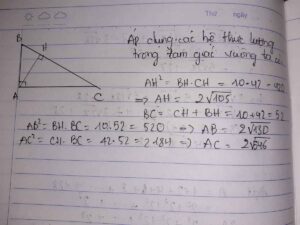 Thứ ngày
B
H
A
C
Áp dụng các hệ thức lượng
trong tam giác vuông ta có
AH² = BH.CH = 10.42 = 420
=> AH = 2√105
BC = CH + BH = 10+42 = 52
AB² = BH.BC = 10.52 = 520 => AB = 2√130
AC² = CH.BC = 42.52 = 2184 => AC = 2√546